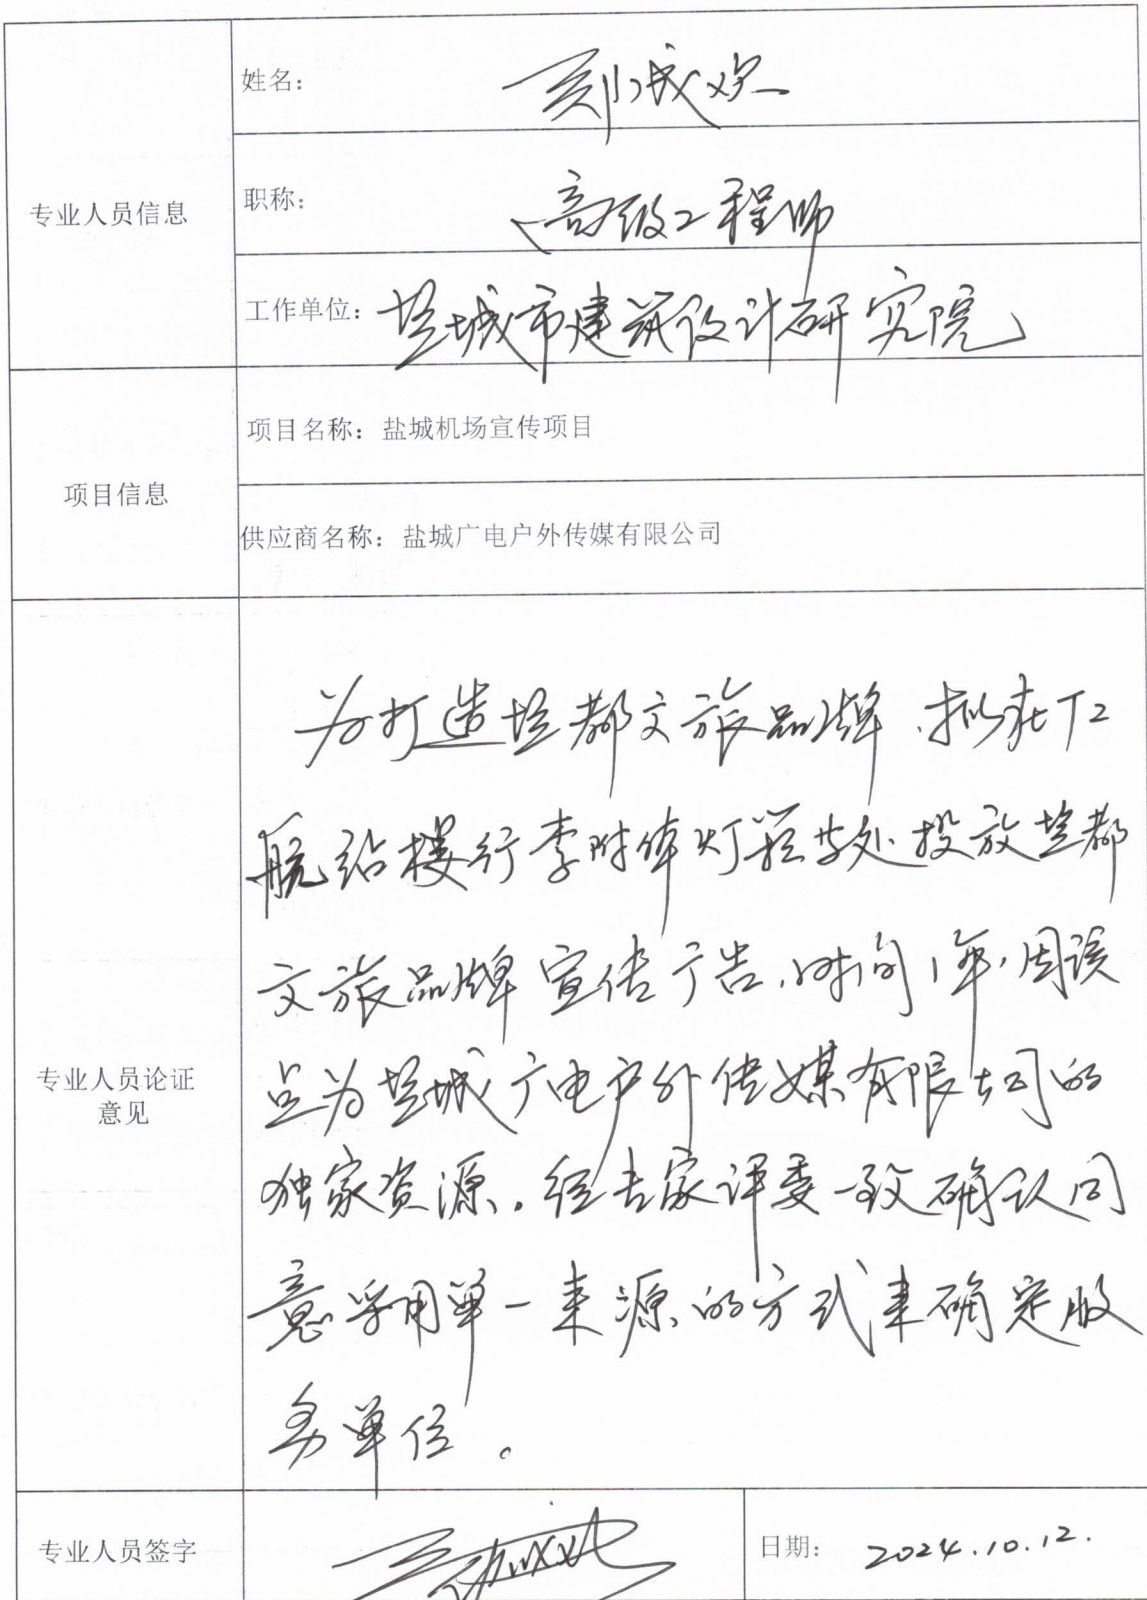 专业人员信息
姓名：
刘成欢
职称：
高级工程师
工作单位：盐城市建筑设计研究院
项目信息
项目名称：盐城机场宣传项目
供应商名称：盐城广电户外传媒有限公司
专业人员论证
意见
为打造盐都文旅品牌，拟在T2
航站楼行李附体灯箱等处投放盐都
文旅品牌宣传广告，时间1年，因该
点为盐城广电户外传媒有限公司的
独家资源。经专家评委一致确认同
意采用单一来源的方式来确定服
务单位。
专业人员签字
日期：2024.10.12.